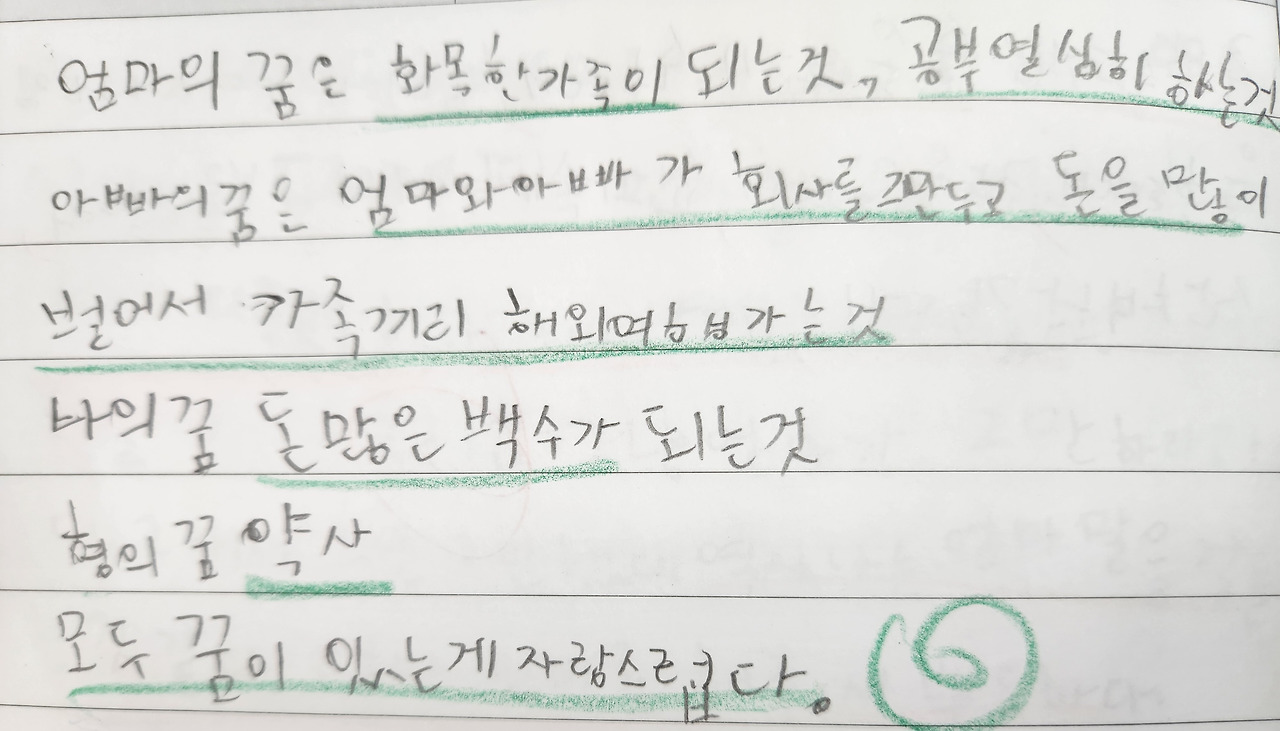 엄마의 꿈은 화목한가족이 되는것, 공부열심히 하는것
아빠의꿈은 엄마와아빠가 회사를그만두고 돈을 많이
벌어서 가족끼리 해외여행가는것
나의꿈 돈많은백수가 되는것
형의 꿈 약사
모두 꿈이 있는게 자랑스럽다.